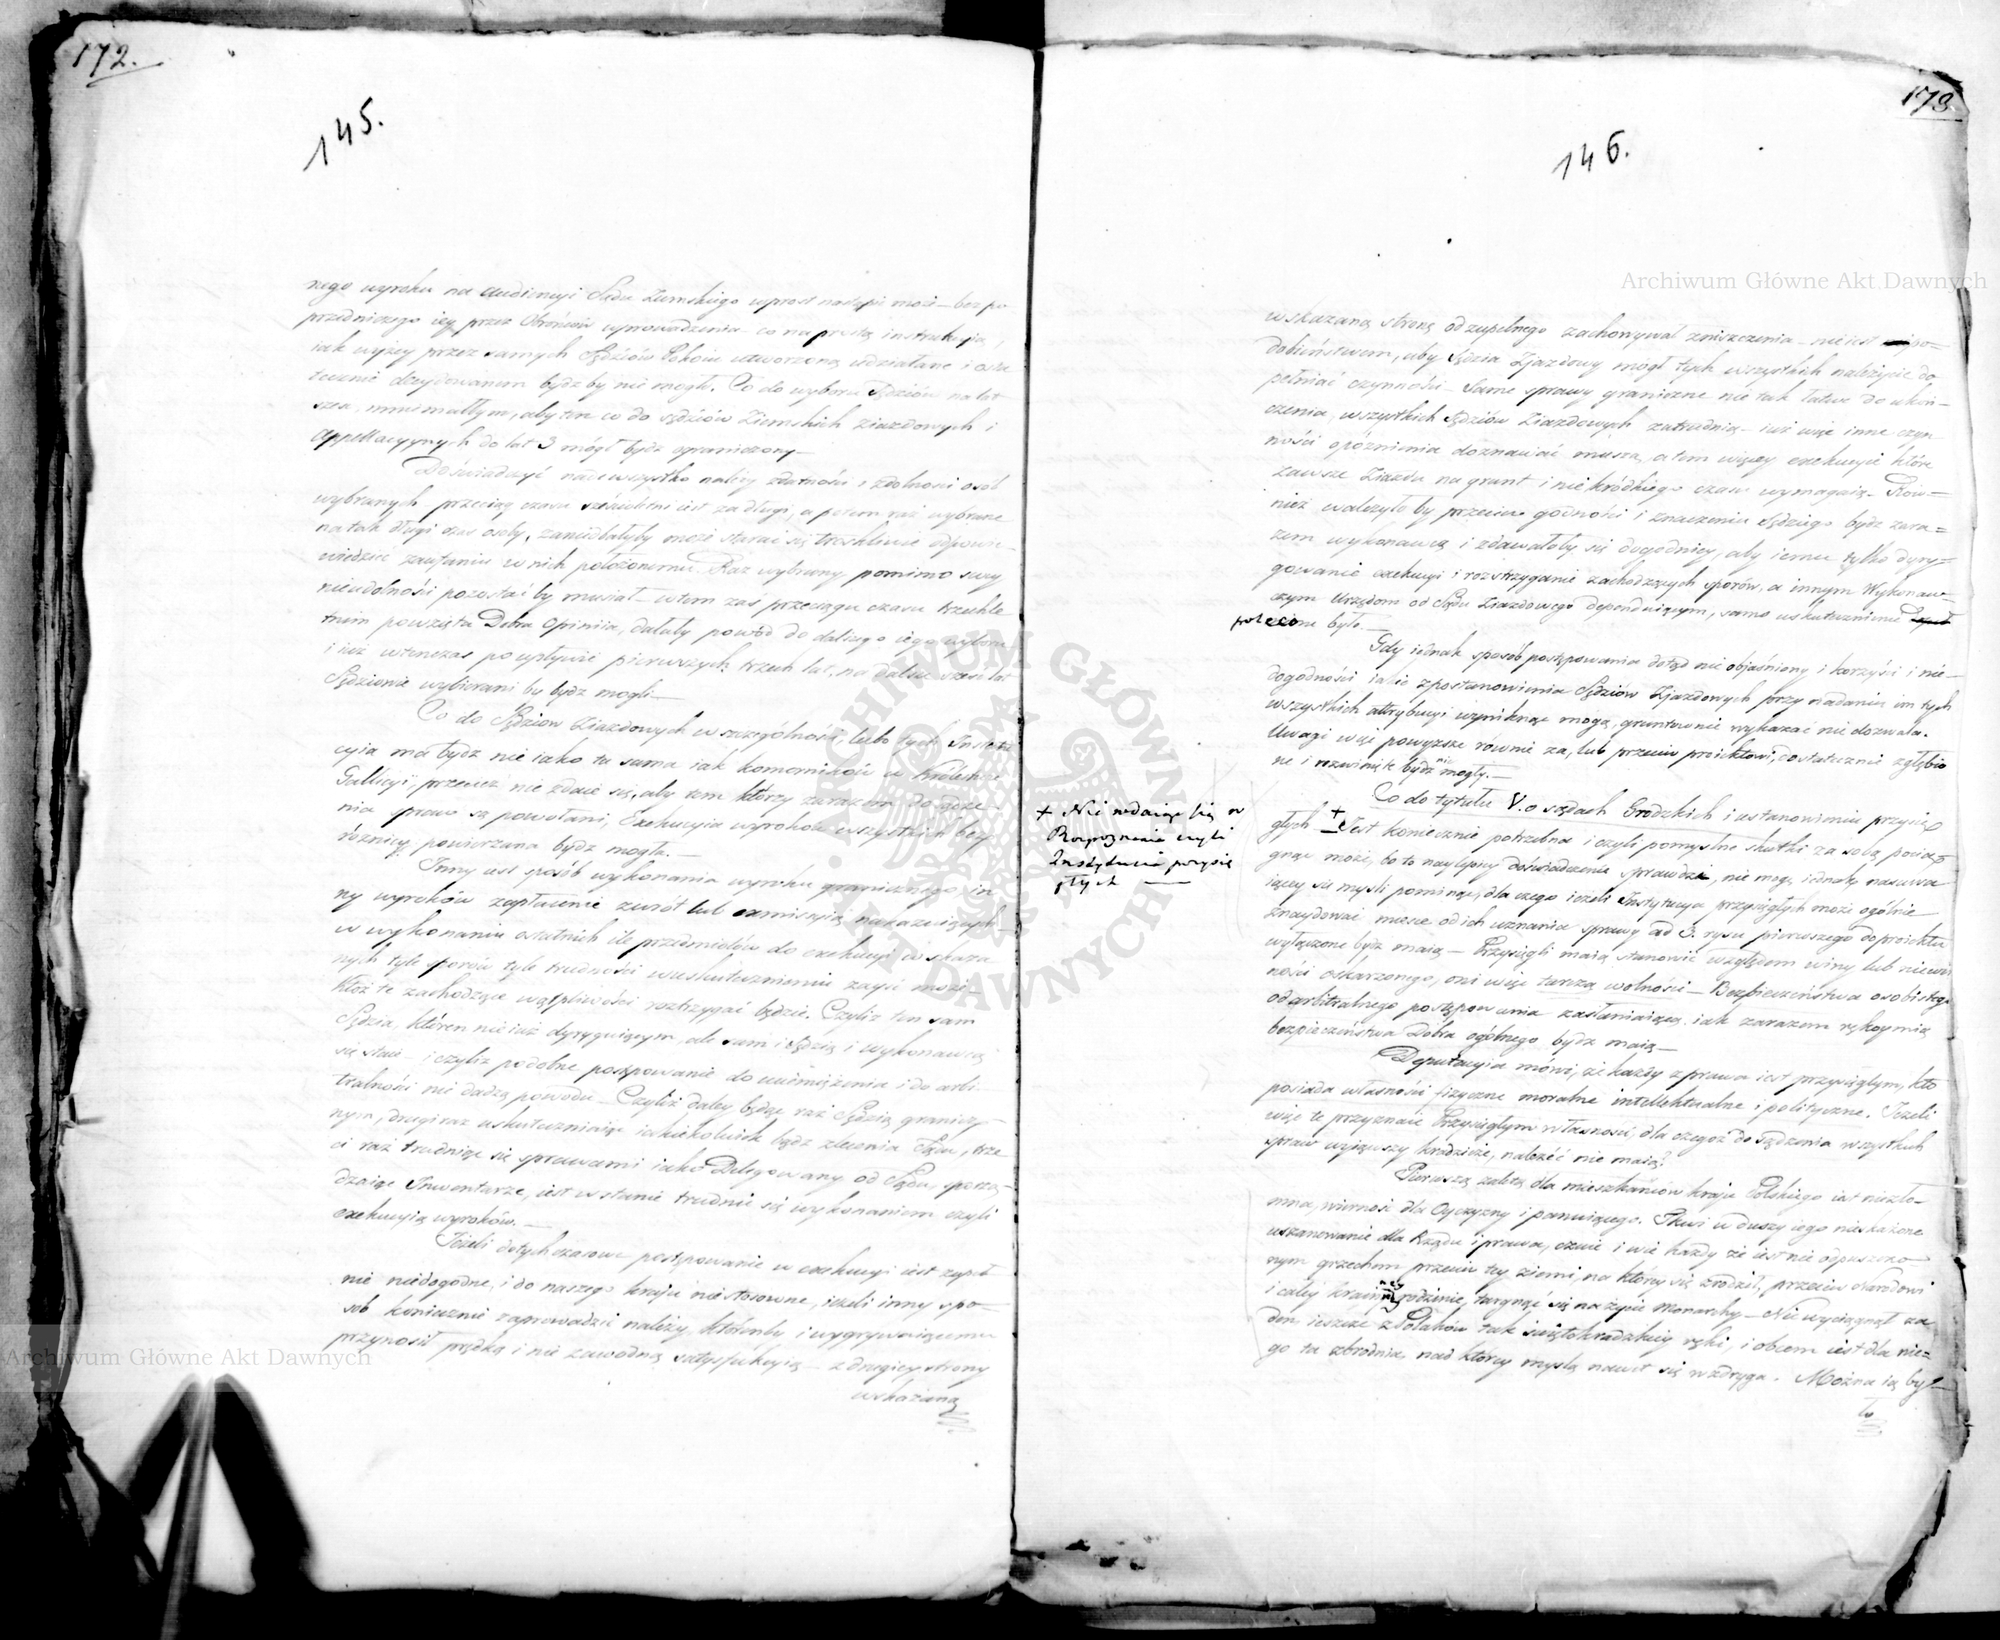 172.
145.
nego wyroku na audiencyi Sądu Ziemskiego wprost nastąpić może – bez po-
przedniczego iey przez Obrońców wprowadzenia – co na prostą instrukcyią,
iak wyżey przez samych Sędziów Pokoiu utworzoną udziałane i osta
tecznie decydowanem bydź by nie mogło. Co do wyboru Sędziów na lat
sześć, mniemałbym, aby ten co do sędziów Ziemskich ziazdowych i
Appellacyynych do lat 3 mógł bydź ograniczony –
Doświadczyć nadewszystko należy zdatności i zdolności osób
wybranych przeciąg czasu sześcioletni iest za długi, a potem raz wybrane
na tak długi czas osoby, zaniedbałyby może starać się troskliwie odpowie-
wiedzieć zaufaniu w nich położonemu. Raz wybrany pomimo swey
nieudolności pozostać by musiał – w tem zaś przeciągu czasu trzechle
tnim powzięta Dobra Opiniia, dałaby powód do dalszego iego wyboru
i iuż wtenczas po upływie pierwszych trzech lat, na dalsze sześć lat
Sędziowie wybierani by bydź mogli –
Co do Sędziow Ziazdowych w szczególności, lubo tych Insty
cyia ma bydź nie iako ta sama iak komorników w Królestwie
Gallicyi, przecież nie zdaie się, aby tem którzy zarazem do sądze-
nia spraw są powołani, Exekucyia wyroków wszystkich bez
różnicy powierzana bydź mogła. –
Inny iest sposób wykonania wyroku granicznego, in-
ny wyroków zapłacenie zwrot lub exmissyią nakazuiących –
w wykonaniu ostatnich ile przedmiotów do exekucyi wskaza
nych tyle sporów tyle trudności w uskutecznieniu zayść może –
któż te zachodzące wątpliwości roztrzygać będzie. Czyliż ten sam
Sędzia, któren nie iuż dyrygującym, ale sam i Sędzią i wykonawcą
się staie – i czyliż podobne postępowanie do uciemiężenia i do arbi
tralności nie dadzą powodu – Czyliż daley będąc raz Sędzią granicz-
nym, drugi raz uskuteczniaiąc iakiekolwiek bądź zlecenia Sądu, trze
ci raz trudniąc się sprawami iako Delegowany od Sądu, sporzą-
dzaiąc Inwentarze, iest w stanie trudnić się wykonaniem czyli
exekucyią wyroków. –
Jeżeli dotychczasowe postępowanie w exekucyi iest zupeł
nie niedogodne, i do naszego kraiu nie stosowne, ieżeli inny spo-
sob koniecznie zaprowadzić należy, któryby i wygrywaiącemu
przynosił prędką i nie zawodną satysfakcyią – z drugiey strony
wskazaną
173
146.
wskazaną stronę od zupełnego zachowywał zniszczenia – nie iest po-
dobieństwem, aby Sędzia Zjazdowy mógł tych wszystkich należycie do
pełniać czynności – Same sprawy graniczne nie tak łatwe do ukoń-
czenia, wszystkich Sędziów Ziazdowych zatrudnią – iuż więc inne czyn
ności opóźnienia doznawać muszą, a tem więcey exekucyie które
zawsze Ziazdu na grunt i nie krótkiego czasu wymagaią – Rów-
nież walczyło by przeciw godności i znaczeniu Sędziego bydź zara-
zem wykonawcą i zdawałoby się dogodniey, aby iemu tylko dyry-
gowanie exekucyi i rozstrzyganie zachodzących sporów, a innym Wykonaw-
czym Urzędom od Sądu Ziazdowego dependuiącym, samo uskutecznienie
polecone było. –
Gdy iednak sposób postępowania dotąd nie objaśniony i korzyści i nie-
dogodności iakie z postanowienia Sędziów Zjazdowych przy nadaniu im tych
wszystkich attrybucyi wyniknąć mogą, gruntownie wykazać nie dozwala.
Uwagi więc powyższe równie za, lub przeciw proiektowi, dostatecznie zgłębio
ne i rozwinięte bydź nie mogły. –
Co do tytułu V. o sądach Grodzkich i ustanowieniu przysię
głych + Jest koniecznie potrzebna i czyli pomyślne skutki za sobą pocią
gnąć może, bo to naylepiey doświadczenie sprawdzi, nie mogę iednak nasuwa
iącey się myśli pominąć, dla czego ieżeli Instytucya przysięgłych może ogólnie
znaydować miesce od ich uznania sprawy ad 3. rysu pierwszego do proiektu
wyłączone bydź maią – Przysięgli maią stanowić względem winy lub niewin
ności oskarzonego, oni więc tarczą wolności – Bezpieczeństwa osobistego
od arbitralnego postępowania zasłaniaiącą iak zarazem rękoymią
bezpieczeństwa Dobra ogólnego bydź maią –
Deputacyia mówi, że każdy z prawa iest przysięgłym, kto
posiada własności fizyczne moralne intellektualne i polityczne. Jeżeli
więc te przyznaie Przysięgłym własności, dla czegoż do sądzenia wszystkich
spraw wyiąwszy kradzieże, należeć nie maią?
Pierwszą zaletą dla mieszkańców kraju Polskiego iest niezło-
mna, wierność dla Oyczyzny i panuiącego. Tkwi w duszy iego nieskażone
uszanowanie dla Rządu i prawa, czuie i wie każdy że iest nie odpuszczo-
nym grzechem przeciw tey ziemi, na którey się zrodził, przeciw Narodowi
i całey kraiowey rodzinie, targnąć się na życie Monarchy – Nie wyciągnął ża
den ieszcze z Polaków tak świętokradzkiey ręki, i obcem iest dla nie-
go ta zbrodnia, nad którey myślą nawet się wzdryga. Można ią by-
ło
+ Nie wdaiąc się w
Rozpoznanie czyli
Instytucia przysię
głych –